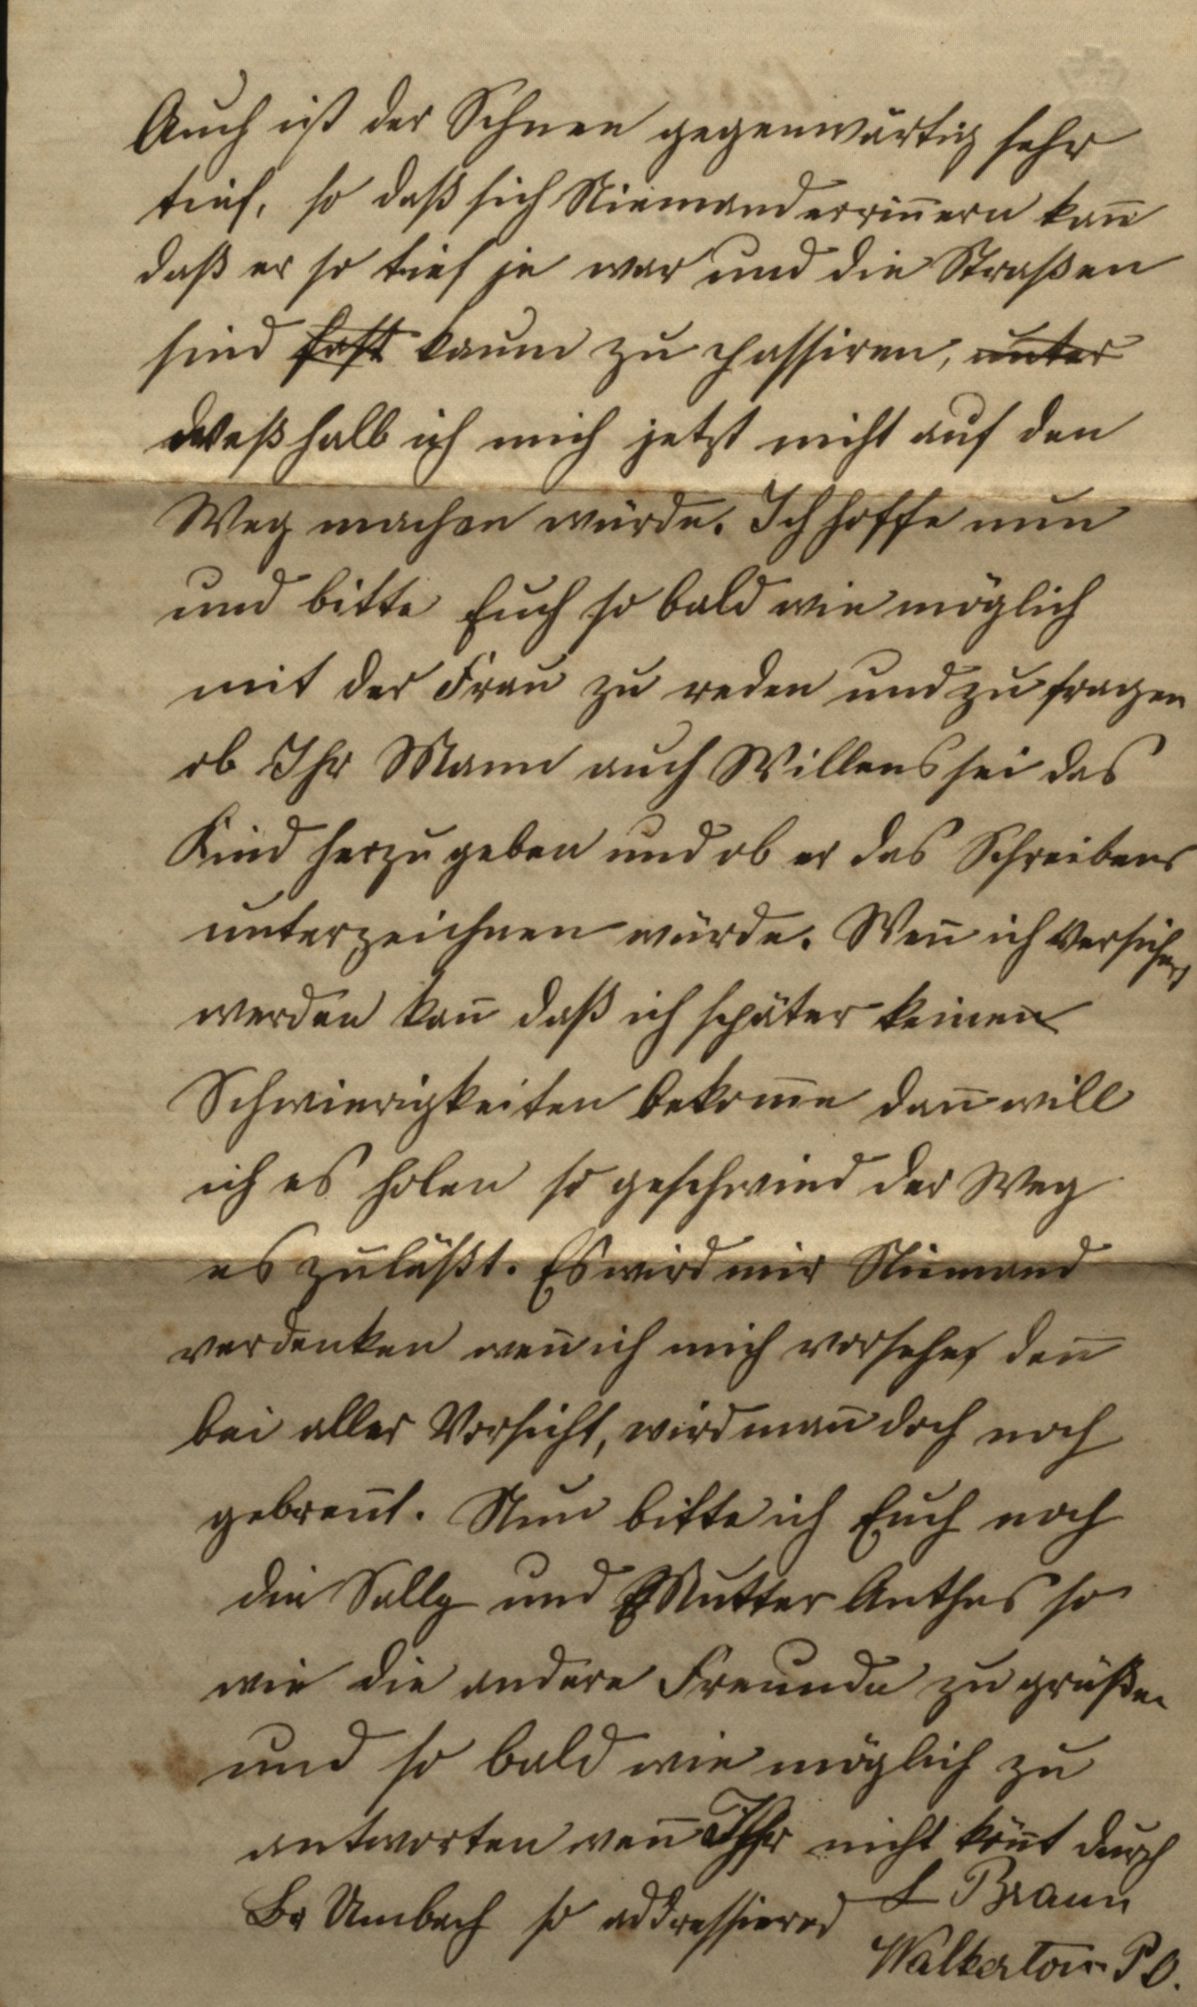 Auch ist der Schnee gegenwärtig sehr
tief, so daß sich Niemand errin̄ern kan̄
daß er so tief je war und die Straßen
sind fast kaum zu passiren, unter
Weßhalb ich mich jetzt nicht auf den
Weg machen würde. Ich hoffe nun
und bitte Euch so bald wie möglich
mit der Frau zu reden und zu fragen
ob Ihr Mann auch Willens sei das
Kind herzugeben und ob er das Schreibens
unterzeichnen würde. Wen̄ ich Versichert
werden kan̄ daß ich später keinen
Schwierigkeiten bekom̄e dan̄ will
ich es holen so geschwind der Weg
es zuläßt. Es wird mir Niemand
verdenken wen̄ ich mich vorsehe, den̄
bei aller Vorsicht, wird man̄ doch noch
gebren̄t. Nun bitte ich Euch noch
die Sally und Mutter Anthes so
wie die andere Freunde zu grüßen
und so bald wie möglich zu
antworten wen̄ Ihr nicht kön̄t durch
Br Umbach so addressiered L Braun
Walkerton P O.